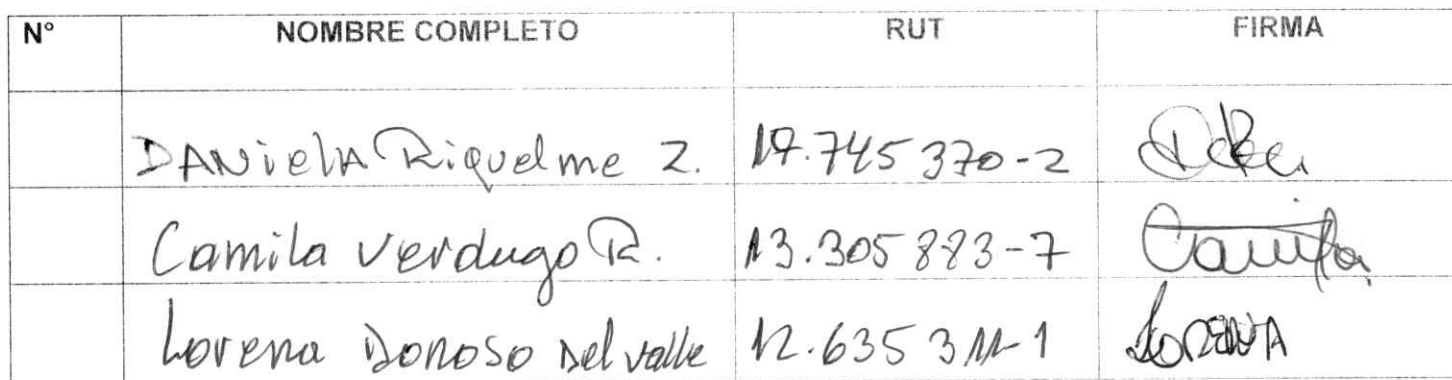 N° NOMBRE COMPLETO RUT FIRMA
DANiela Riquelme Z. 17.745 370-2
Camila Verdugo R. 13.305 883-7 Camila
Lorena Donoso Del valle 12.635 311-1 LORENA